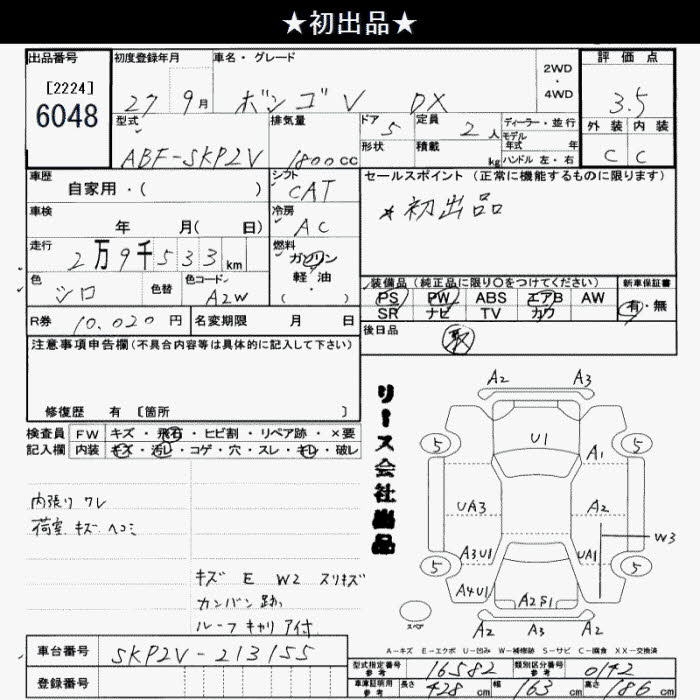 ★初出品★
出品番号 初度登録年月 車名・グレード 2WD・4WD 評価点
[2224]
6048
27 9月 ボンゴV DX 3.5
型式 排気量 ドア 定員 ディーラー・並行
ABF-SKP2V 1800cc 5 2人 モデル年式 年
形状 積載 kg ハンドル 左・右
外装 内装
C C
車歴 シフト セールスポイント(正常に機能するものに限ります)
自家用・( ) CAT
*初出品
車検 冷房
年 月( 日) AC
走行 燃料
2万9千533km ガソリン
軽・油
( ・ )
色 色替 色コード
シロ A2W
装備品(純正品に限り○をつけてください) 新車保証書
PS PW ABS エアB AW 有・無
SR ナビ TV カワ
R券 10,020円 名変期限 月 日
後日品
取
注意事項申告欄(不具合内容等は具体的に記入して下さい)
修復歴 有 [箇所 ]
検査員 FW キズ・飛石・ヒビ割・リペア跡・×要
記入欄 内装 キズ・汚レ・コゲ・穴・スレ・キレ・破レ
リース会社出品
内張り ワレ
荷室 キズ ヘコミ
キズ E W2 スリキズ
カンバン跡
ルーフキャリア付
A2 A3
5 U1 5
A1
UA3 A2
W3
A3U1 UA1
5 5
A4U1 A2S1
スペア
A2 A3 A2
A-キズ E-エクボ U-凹み W-補修跡 S-サビ C-腐食 XX-交換済
車台番号 SKP2V-213155
登録番号
型式指定番号 参考 16582 類別区分番号 参考 0142
車庫証明用 参考 長さ 428cm 幅 163cm 高さ 186cm